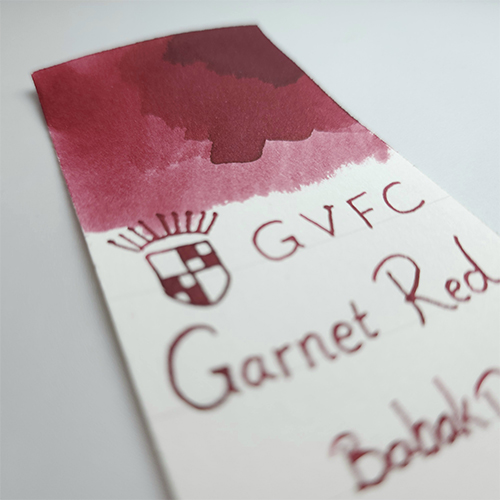 GVFC
Garnet Red
Babak